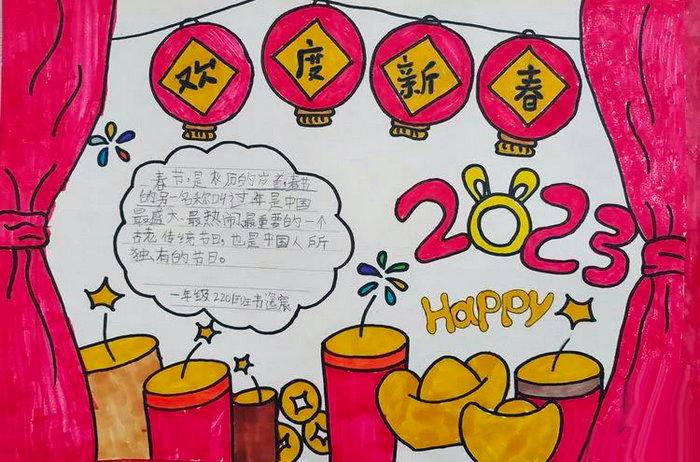 欢度新春
春节,是农历的岁首,春节
的另一名称叫过年,是中国
最盛大、最热闹、最重要的一个
古老传统节日,也是中国人所
独有的节日。
一年级220班
2023
Happy